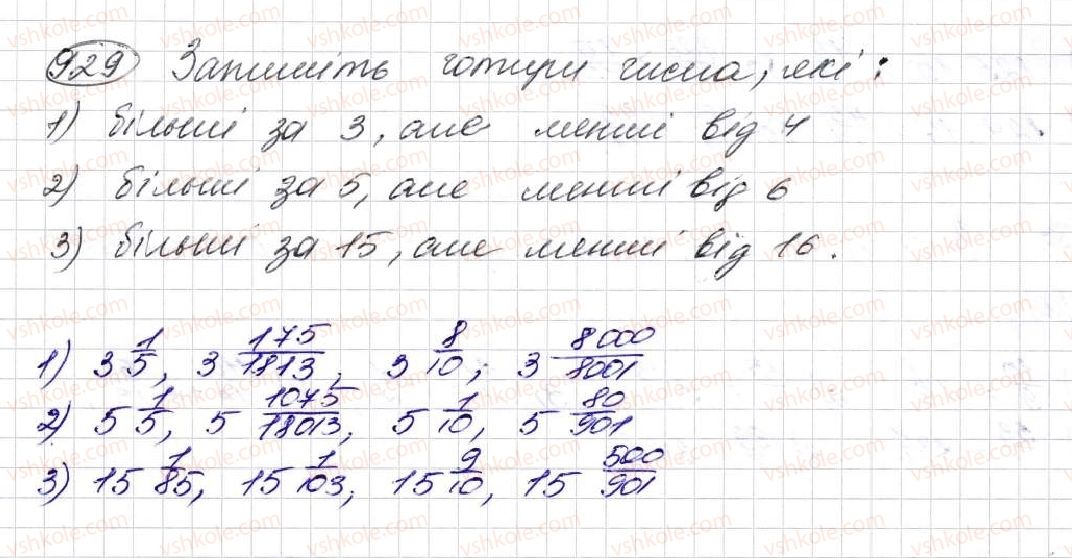 929 Запишіть чотири числа, які:
1) більші за 3, але менші від 4
2) більші за 5, але менші від 6
3) більші за 15, але менші від 16.
1) 3 1/5, 3 175/1813, 3 8/10; 3 8000/8001
2) 5 1/5, 5 1075/18013, 5 1/10, 5 80/901
3) 15 1/85, 15 1/103, 15 9/10, 15 500/901
vshkole.com